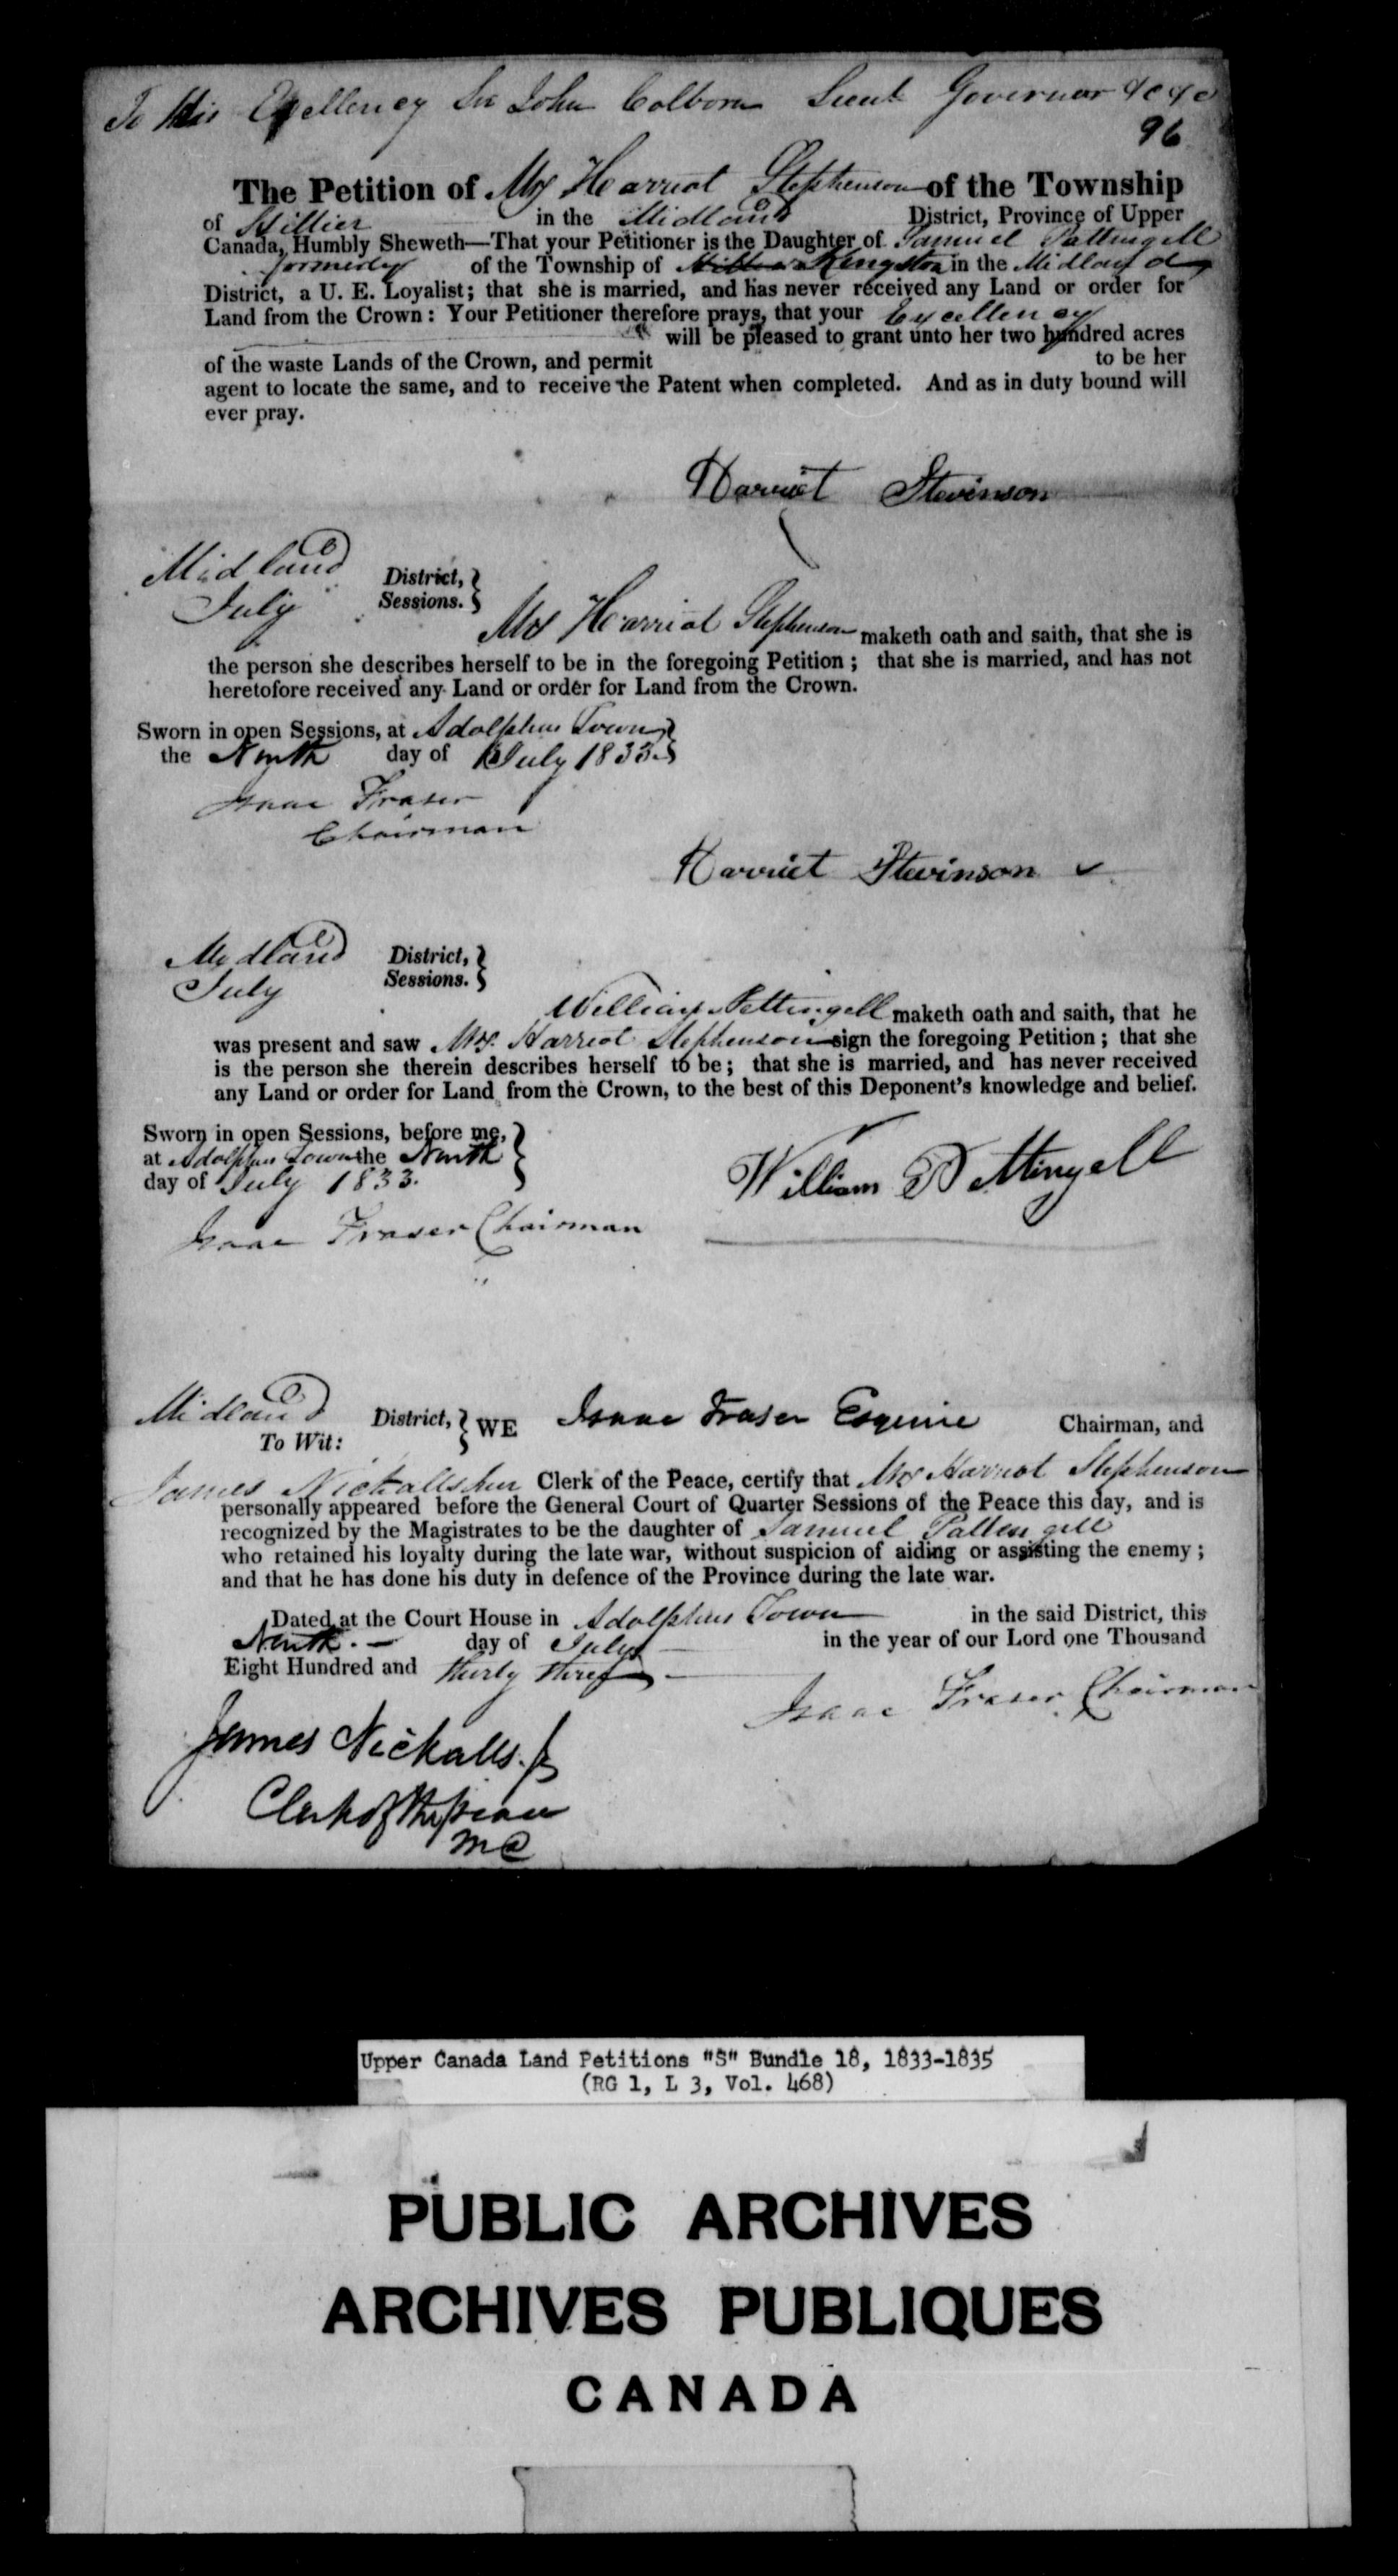 To His Excellency Sir John Colborn Lieut Governor &c &c
96
The Petition of Mrs Harriot Stephenson of the Township
of Hillier in the Midland District, Province of Upper
Canada, Humbly Sheweth—That your Petitioner is the Daughter of Samuel Pattingell
formerly of the Township of Kingston in the Midland
District, a U. E. Loyalist; that she is married, and has never received any Land or order for
Land from the Crown: Your Petitioner therefore prays, that your Excellency
will be pleased to grant unto her two hundred acres
of the waste Lands of the Crown, and permit to be her
agent to locate the same, and to receive the Patent when completed. And as in duty bound will
ever pray.
Harriet Stevinson
Midland District,
July Sessions.
Mrs Harriot Stephenson maketh oath and saith, that she is
the person she describes herself to be in the foregoing Petition; that she is married, and has not
heretofore received any Land or order for Land from the Crown.
Sworn in open Sessions, at Adolphus Town
the Ninth day of July 1833.
Isaac Fraser
Chairman
Harriet Stevinson
Midland District,
July Sessions.
William Pettingell maketh oath and saith, that he
was present and saw Mrs. Harriot Stephenson sign the foregoing Petition; that she
is the person she therein describes herself to be; that she is married, and has never received
any Land or order for Land from the Crown, to the best of this Deponent's knowledge and belief.
Sworn in open Sessions, before me,
at Adolphus Town the Ninth
day of July 1833.
William Pettingell
Isaac Fraser Chairman
Midland District, WE Isaac Fraser Esquire Chairman, and
To Wit:
James Nickalls Jun Clerk of the Peace, certify that Mrs Harriot Stephenson
personally appeared before the General Court of Quarter Sessions of the Peace this day, and is
recognized by the Magistrates to be the daughter of Samuel Pattengell
who retained his loyalty during the late war, without suspicion of aiding or assisting the enemy;
and that he has done his duty in defence of the Province during the late war.
Dated at the Court House in Adolphus Town in the said District, this
Ninth. day of July in the year of our Lord one Thousand
Eight Hundred and thirty three.
Isaac Fraser Chairman
James Nickalls Jr
Clerk of the peace
M D
Upper Canada Land Petitions "S" Bundle 18, 1833-1835
(RG 1, L 3, Vol. 468)
PUBLIC ARCHIVES
ARCHIVES PUBLIQUES
CANADA